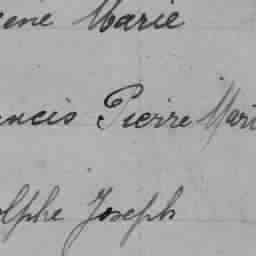 ène Marie
ncis Pierre Mari
olphe Joseph